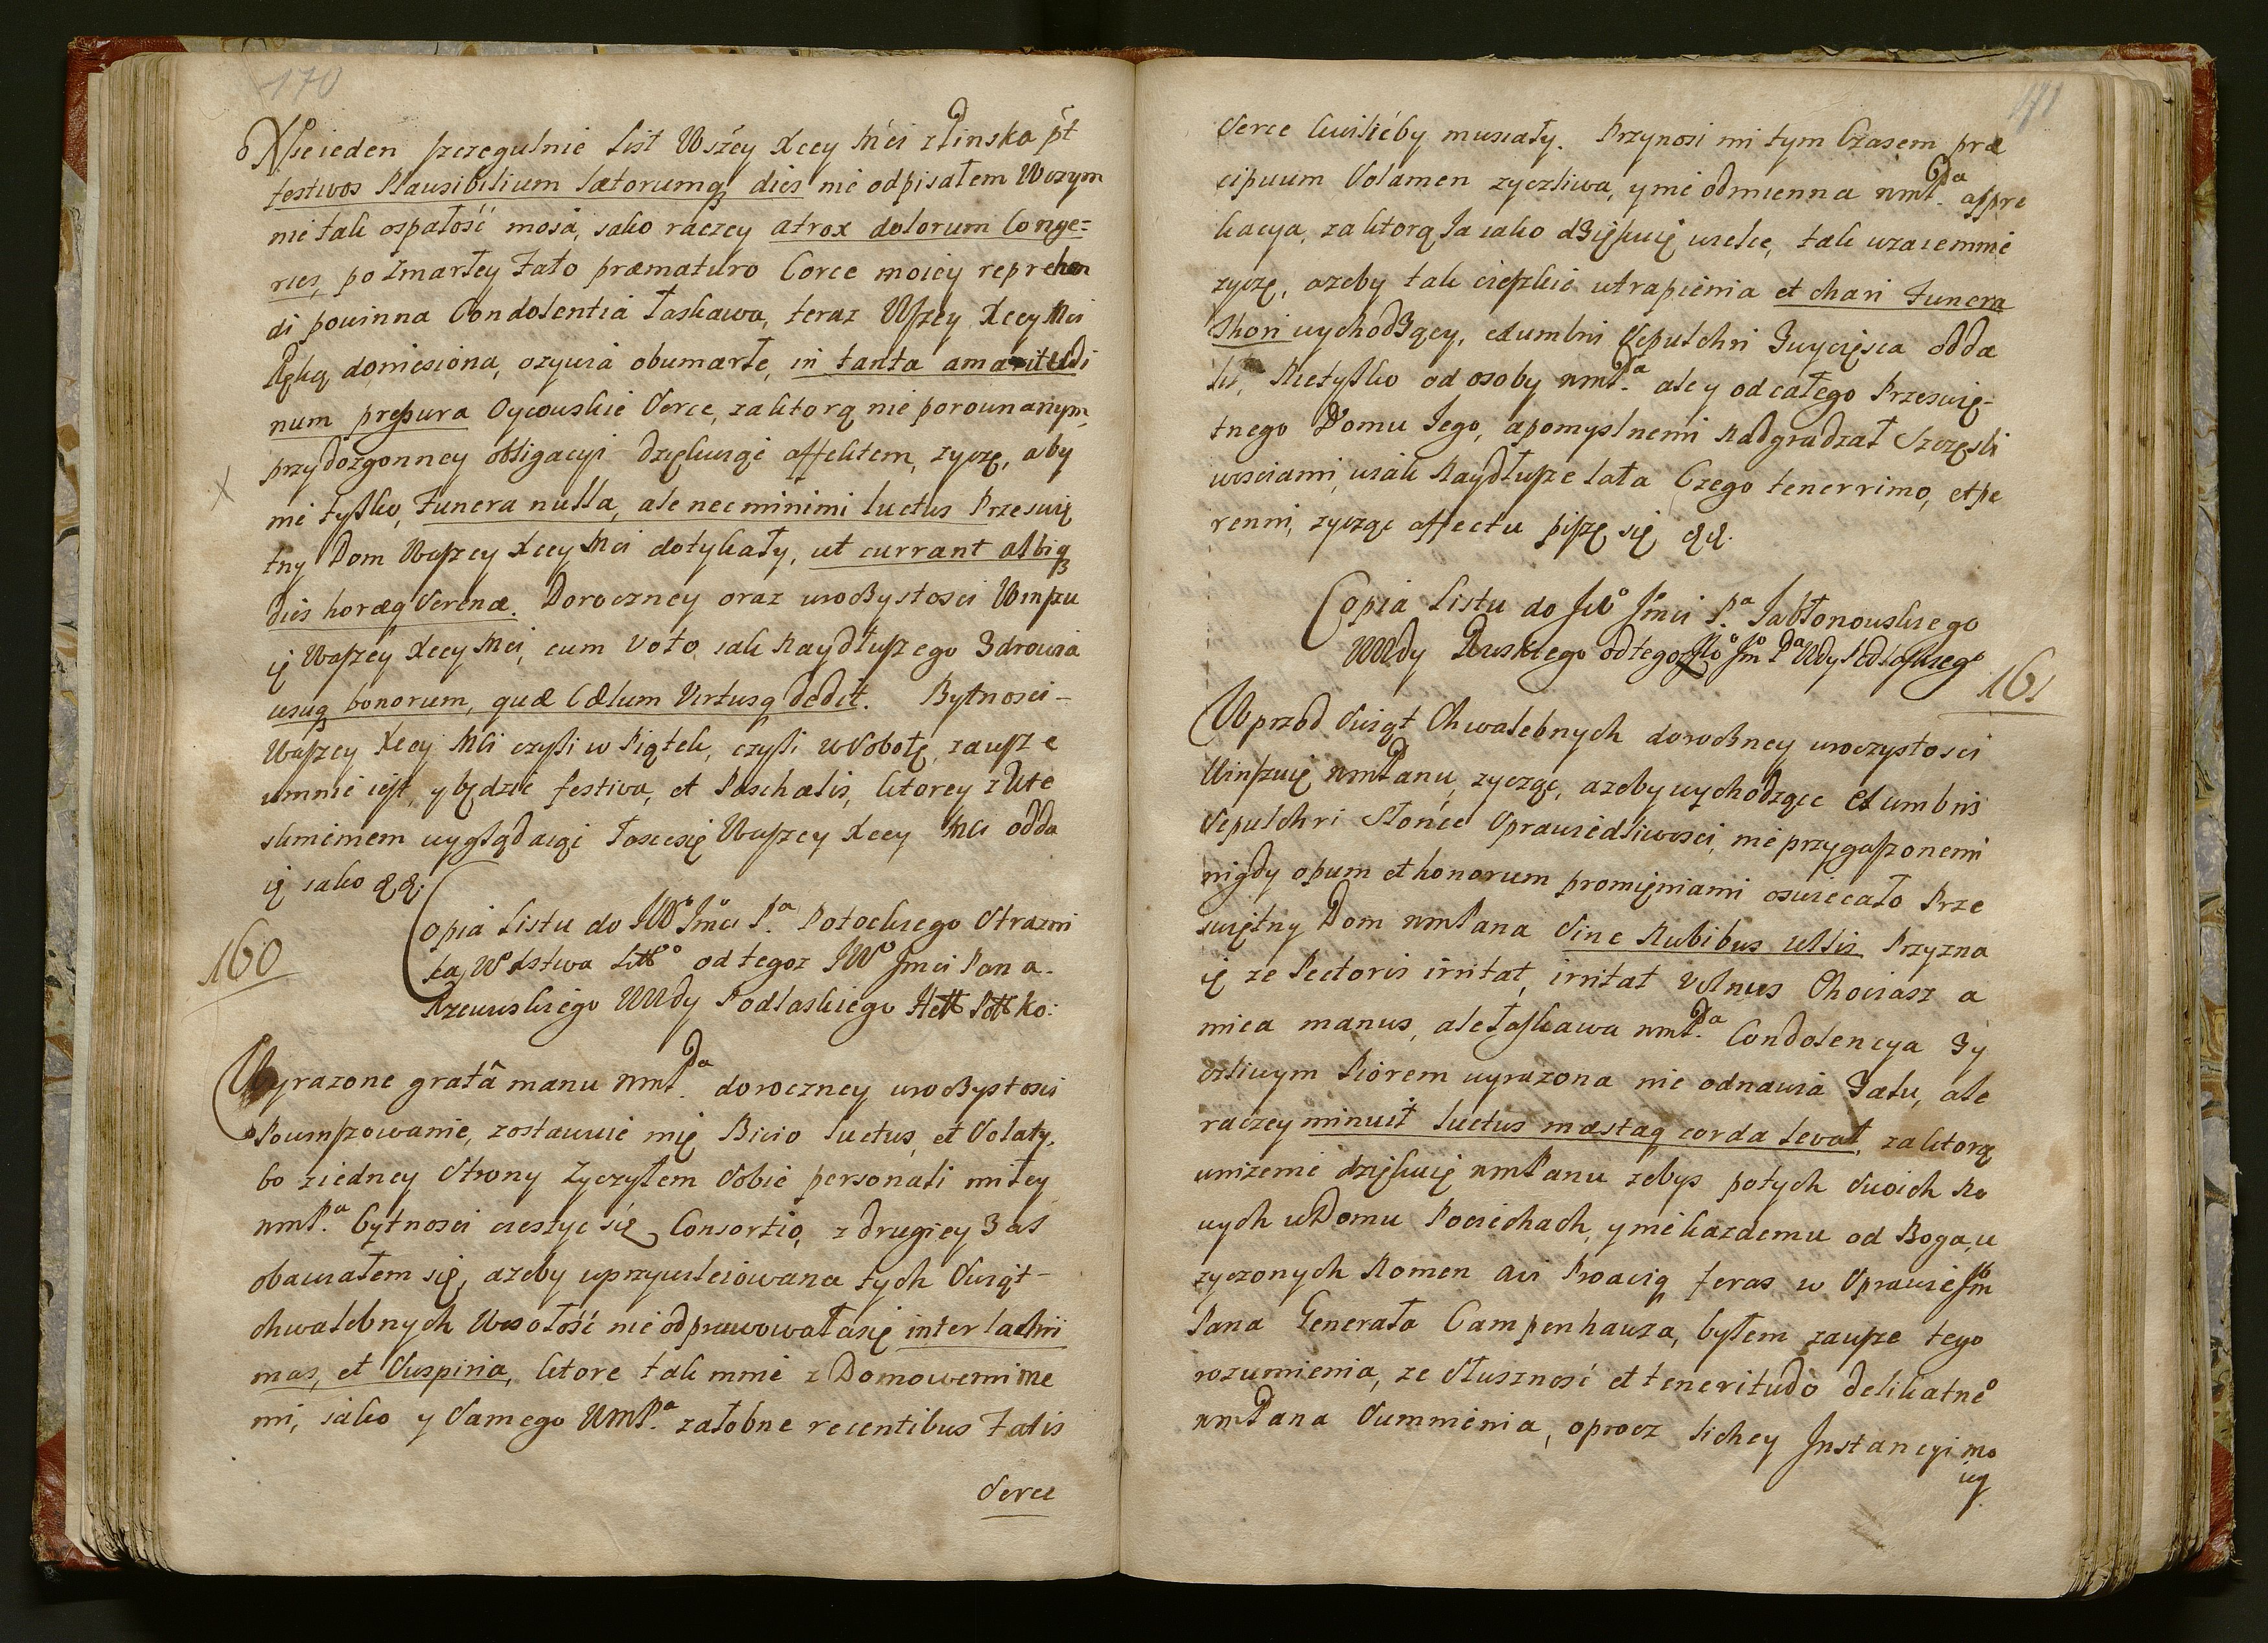 170
Nieieden szczegulnie List Wszey Xcey Mci z Pinska pt
festivos Plausibilium lætorumq dies nie odpisałem w czym
nie tak ospałość moia, iako raczey atrox dolorum Conge=
ries, po Zmarłey Fato præmaturo Corce moiey reprehen
di powinna Condolentia łaskawa, teraz Wszey Xcey Mci
Ręką doniesiona, ozywia obumarłe, in tanta amaritudi
num pressura Oycowskie Serce, za ktorą nie porownanym,
przydozgonney obligacyi dziękuiąc affektem, zyczę, aby
nie tylko, Funera nulla, ale nec minimi luctus Przeswię
tny Dom Waszey Xcey Mci dotykały, ut currant albiq
dies horæq Serenæ. Doroczney oraz uroczystosci Winszu
ię Waszey Xcey Mci, cum Voto iak Naydłuszego Zdrowia
usuq bonorum, quæ Cælum Virtusq dedit. Bytnosci-
Waszey Xcey Mci czyli w Piątek, czyli w Sobotę, zausze
umnie iest, y będzie festiva, et Paschalis, ktorey z Ute
sknieniem wyglądaiąc łascesię Waszey Xcey Mci odda
ię iako &&.
160
Copia Listu do JWo Jmci Pa. Potockiego Strazni
ka Wo dstwa Litto od tegoz JWo Jmci Pana.
Rzewuskiego WWdy Podlaskiego Hett Pott Ko:
Wyrazone gratâ manu WmPa. doroczney uroczystosci
Powinszowanie, zostawuie mię Bivio luctus, et Volaty.
bo ziedney Strony Zyczyłem Sobie personali miłey
WmPa. bytnosci ciestyc się Consortio, z drugiey Zas
obawiałem się, azeby uprzywileiowana tych Swiąt-
chwalebnych Wesołość nie odprawowała się inter lachri
mas, et Suspiria, ktore tak mnie z Domowemi me
mi, iako y Samego WmPa. załobne recentibus Fatis
Serce

171
Serce kwilićby musiały. Przynosi mi tym Czasem præ
cipuum Solamen zyczliwa, y nie odmienna WmPa. appre
kacya, za ktorą Ja iako dziękuię wielce, tak wzaiemnie
zyczę, azeby tak ciężkie utrapienia et chari Funera
Thori wychodzący, et umbri Sepulchri Zwycięsca odda
lił, Nietylko od osoby WmPa. ale y od całego Przeswię-
tnego Domu Jego, a pomyslnemi Nadgradzał Szczęśli
wosciami, wiak Naydłusze lata Czego tenerrimo, et pe
renni, zycząc affectu piszę się &&.
Copia Listu do JWo Jmci Pa. Jabłonowskiego
WWdy Ruskiego od tegoz JWo Jm Pa Wdy Podlaskiego
161
Wprzod Swiąt Chwalebnych doroczney uroczystosci
Winszuię WmPanu, zycząc, azeby wychodzące et umbris
Sepulchri Słońce Sprawiedliwosci, nie przygaszonemi
nigdy opum et honorum promięniami oswiecało Prze
swiętny Dom WmPana Sine Nubibus ullis. Przyzna
ię ze Pectoris irritat, irritat Vulnus Chociasz a
mica manus, ale łaskawa WmPa. Condolencya Zy
czliwym Piorem wyrazona nie odnawia Zalu, ale
raczey minuit luctus mæstaq corda levat, za ktorą
unizenie dziękuię WmPanu zebys potych Swoich No
wych w Domu Pociechach, y nie kazdemu od Boga, u
zyczonych Nomen avi Proaviq teras w Sprawie Jm
Pana Generała Campenhauza, byłem zausze tego
rozumienia, ze Słusznosć et teneritudo delikatneo
WmPana Summienia, oprocz lichey Instancyi mo
iey